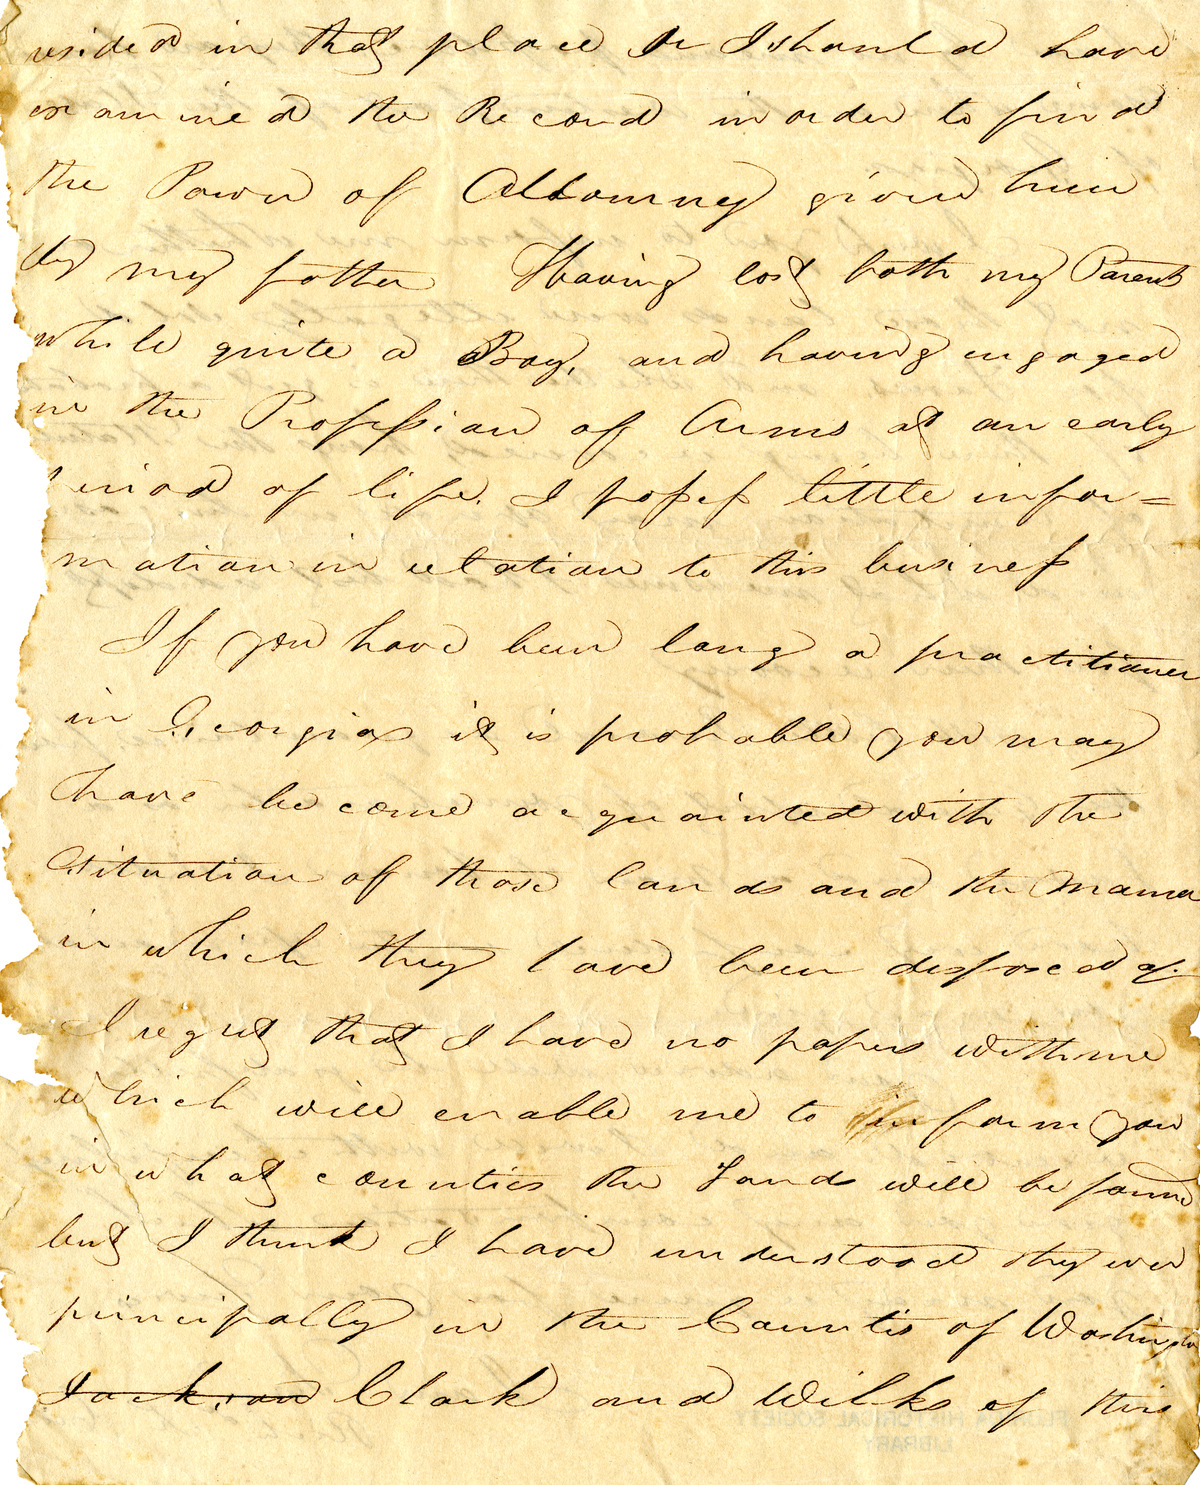 resided in that place or I should have
examined the Record in order to find
the Power of Attorney given him
by my father Having lost both my Parents
while quite a Boy, and having engaged
in the Profession of Arms at an early
period of life. I possess little infor=
mation in relation to this business
If you have been long a practitioner
in Georgia it is probable you may
have become acquainted with the
situation of those lands and the manner
in which they have been disposed of.
I regret that I have no papers with me
which will enable me to inform you
in what counties the Lands will be found
but I think I have understood they were
principally in the Counties of Washington
Jackson Clark and Wilks of this
FLORIDA HISTORICAL SOCIETY
LIBRARY